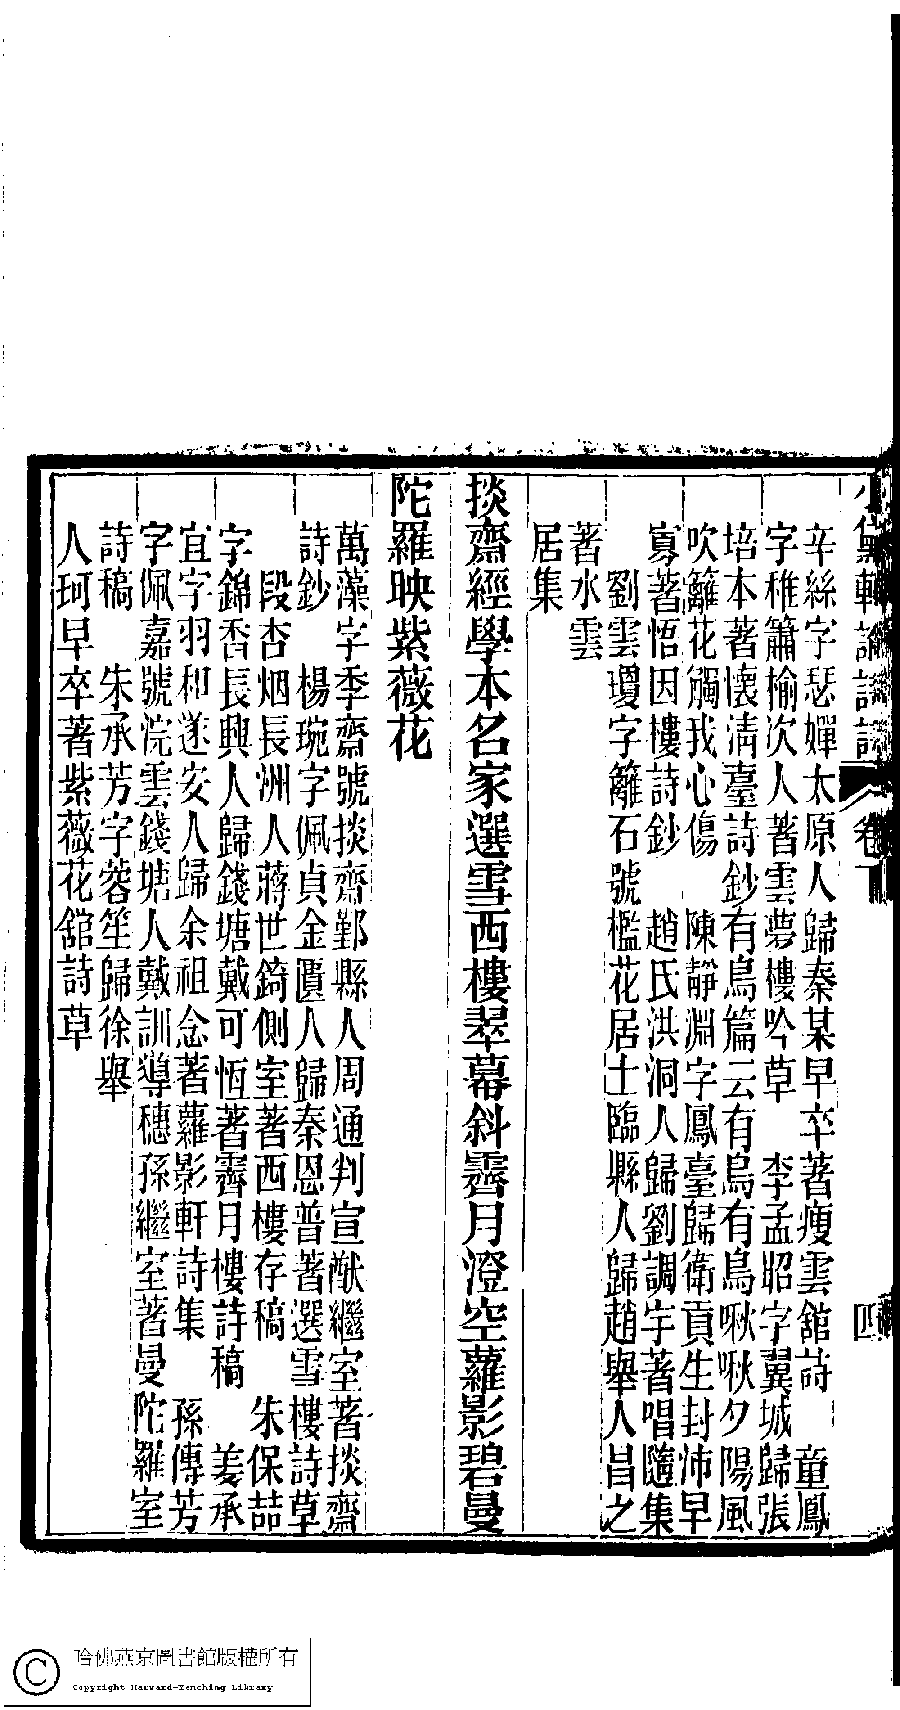 小黛軒論詩詩 卷下 四
辛絲字瑟嬋太原人歸秦某早卒著瘦雲舘詩 童鳳
字稚簫榆次人著雲夢樓吟草 李孟昭字翼城歸張
培本著懷清臺詩鈔有烏篇云有烏有烏啾啾夕陽風
吹籬花觸我心傷 陳靜淵字鳳臺歸衛貢生封沛早
寡著悟因樓詩鈔 趙氏洪洞人歸劉調宇著唱隨集
劉雲瓊字籬石號檻花居士臨縣人歸趙舉人昌之
著水雲
居集
掞齋經學本名家選雪西樓翠幕斜霽月澄空蘿影碧曼
陀羅映紫薇花
萬藻字季齋號掞齋鄞縣人周通判宣猷繼室著掞齋
詩鈔 楊琬字佩貞金匱人歸秦恩普著選雪樓詩草
段杏烟長洲人蔣世錡側室著西樓存稿 朱保喆
字錦香長興人歸錢塘戴可恆著霽月樓詩稿 姜承
宜字羽和遂安人歸余祖念著蘿影軒詩集 孫傳芳
字佩嘉號浣雲錢塘人戴訓導穗孫繼室著曼陀羅室
詩稿 朱承芳字蓉笙歸徐舉
人珂早卒著紫薇花舘詩草
哈佛燕京圖書館版權所有
Copyright Harvard-Yenching Library